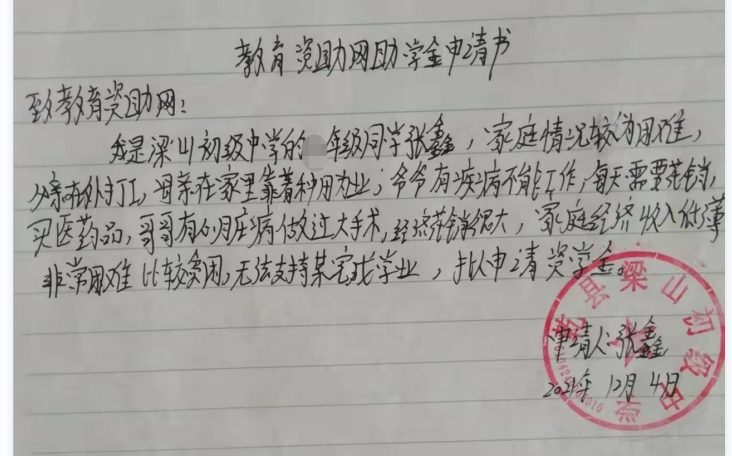 教育资助网助学金申请书
致教育资助网：
我是梁山初级中学的 年级同学张鑫，家庭情况较为困难，
父亲在外打工，母亲在家里靠着种田为业；爷爷有疾病不能工作，每天需要花销，
买医药品，哥哥有心脏病做过大手术，经济花销很大，家庭经济收入低薄
非常困难 比较贫困，无法支持某完成学业，所以申请资学金。
申请人：张鑫
2021年12月4日
县梁山初级中学